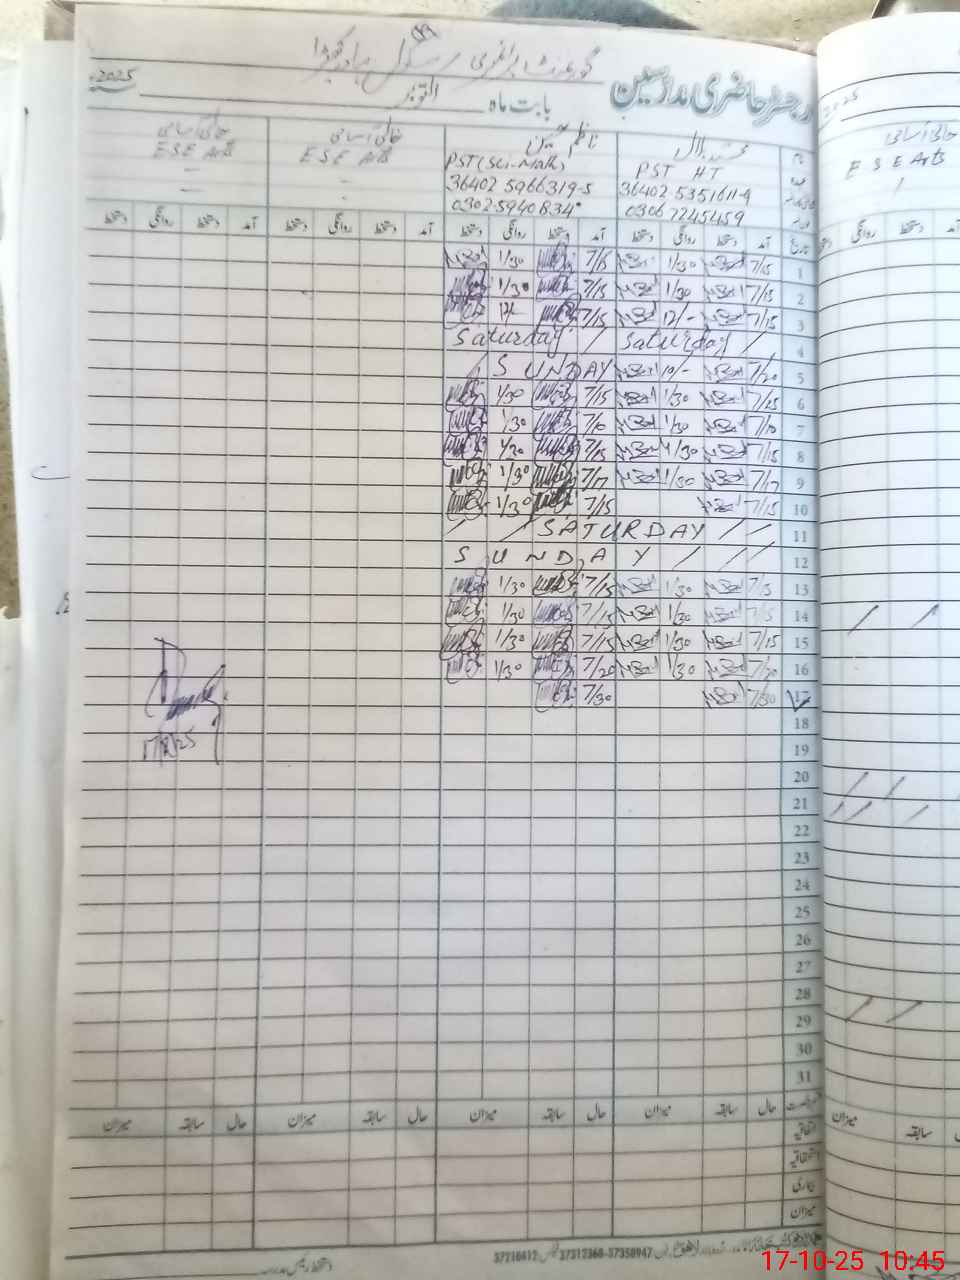 گورنمنٹ پرائمری سکول
رجسٹر حاضری مدرسین بابت ماہ اکتوبر سنہ 2025ء
محمد بلال ناظم حسین خالی آسامی خالی آسامی
PST HT PST (Sci-Math) ESE Arts ESE Arts
36402 5351611-9 36402 5966319-5 - -
0306 7245459 0302-5940834 -
تاریخ آمد دستخط روانگی دستخط آمد دستخط روانگی دستخط آمد دستخط روانگی دستخط آمد دستخط روانگی دستخط
1 7/15 1/30 7/15 1/30
2 7/15 1/30 7/15 1/30
3 7/15 12/- 7/15 12/-
4 / Saturday / Saturday
5 7/20 10/- SUNDAY /
6 7/15 1/30 7/15 1/30
7 7/10 1/30 7/10 1/30
8 7/15 1/30 7/15 1/30
9 7/17 1/30 7/17 1/30
10 7/15 7/15 1/30
11 / / SATURDAY / /
12 SUNDAY / / /
13 7/15 1/30 7/15 1/30
14 7/15 1/30 7/15 1/30
15 7/15 1/30 7/15 1/30
16 7/20 1/30 7/20 1/30
17 7/30 7/30
18
19
20
21
22
23
24
25
26
27
28
29
30
31
حال سابقہ میزان حال سابقہ میزان حال سابقہ میزان حال سابقہ میزان
اتفاقیہ
استحقاقیہ
بیماری
میزان
37312360-37350947
37210412
دستخط رئیس مدرسہ
2025
خالی آسامی
ESE Arts
دستخط روانگی دستخط
میزان سابقہ
17-10-25 10:45